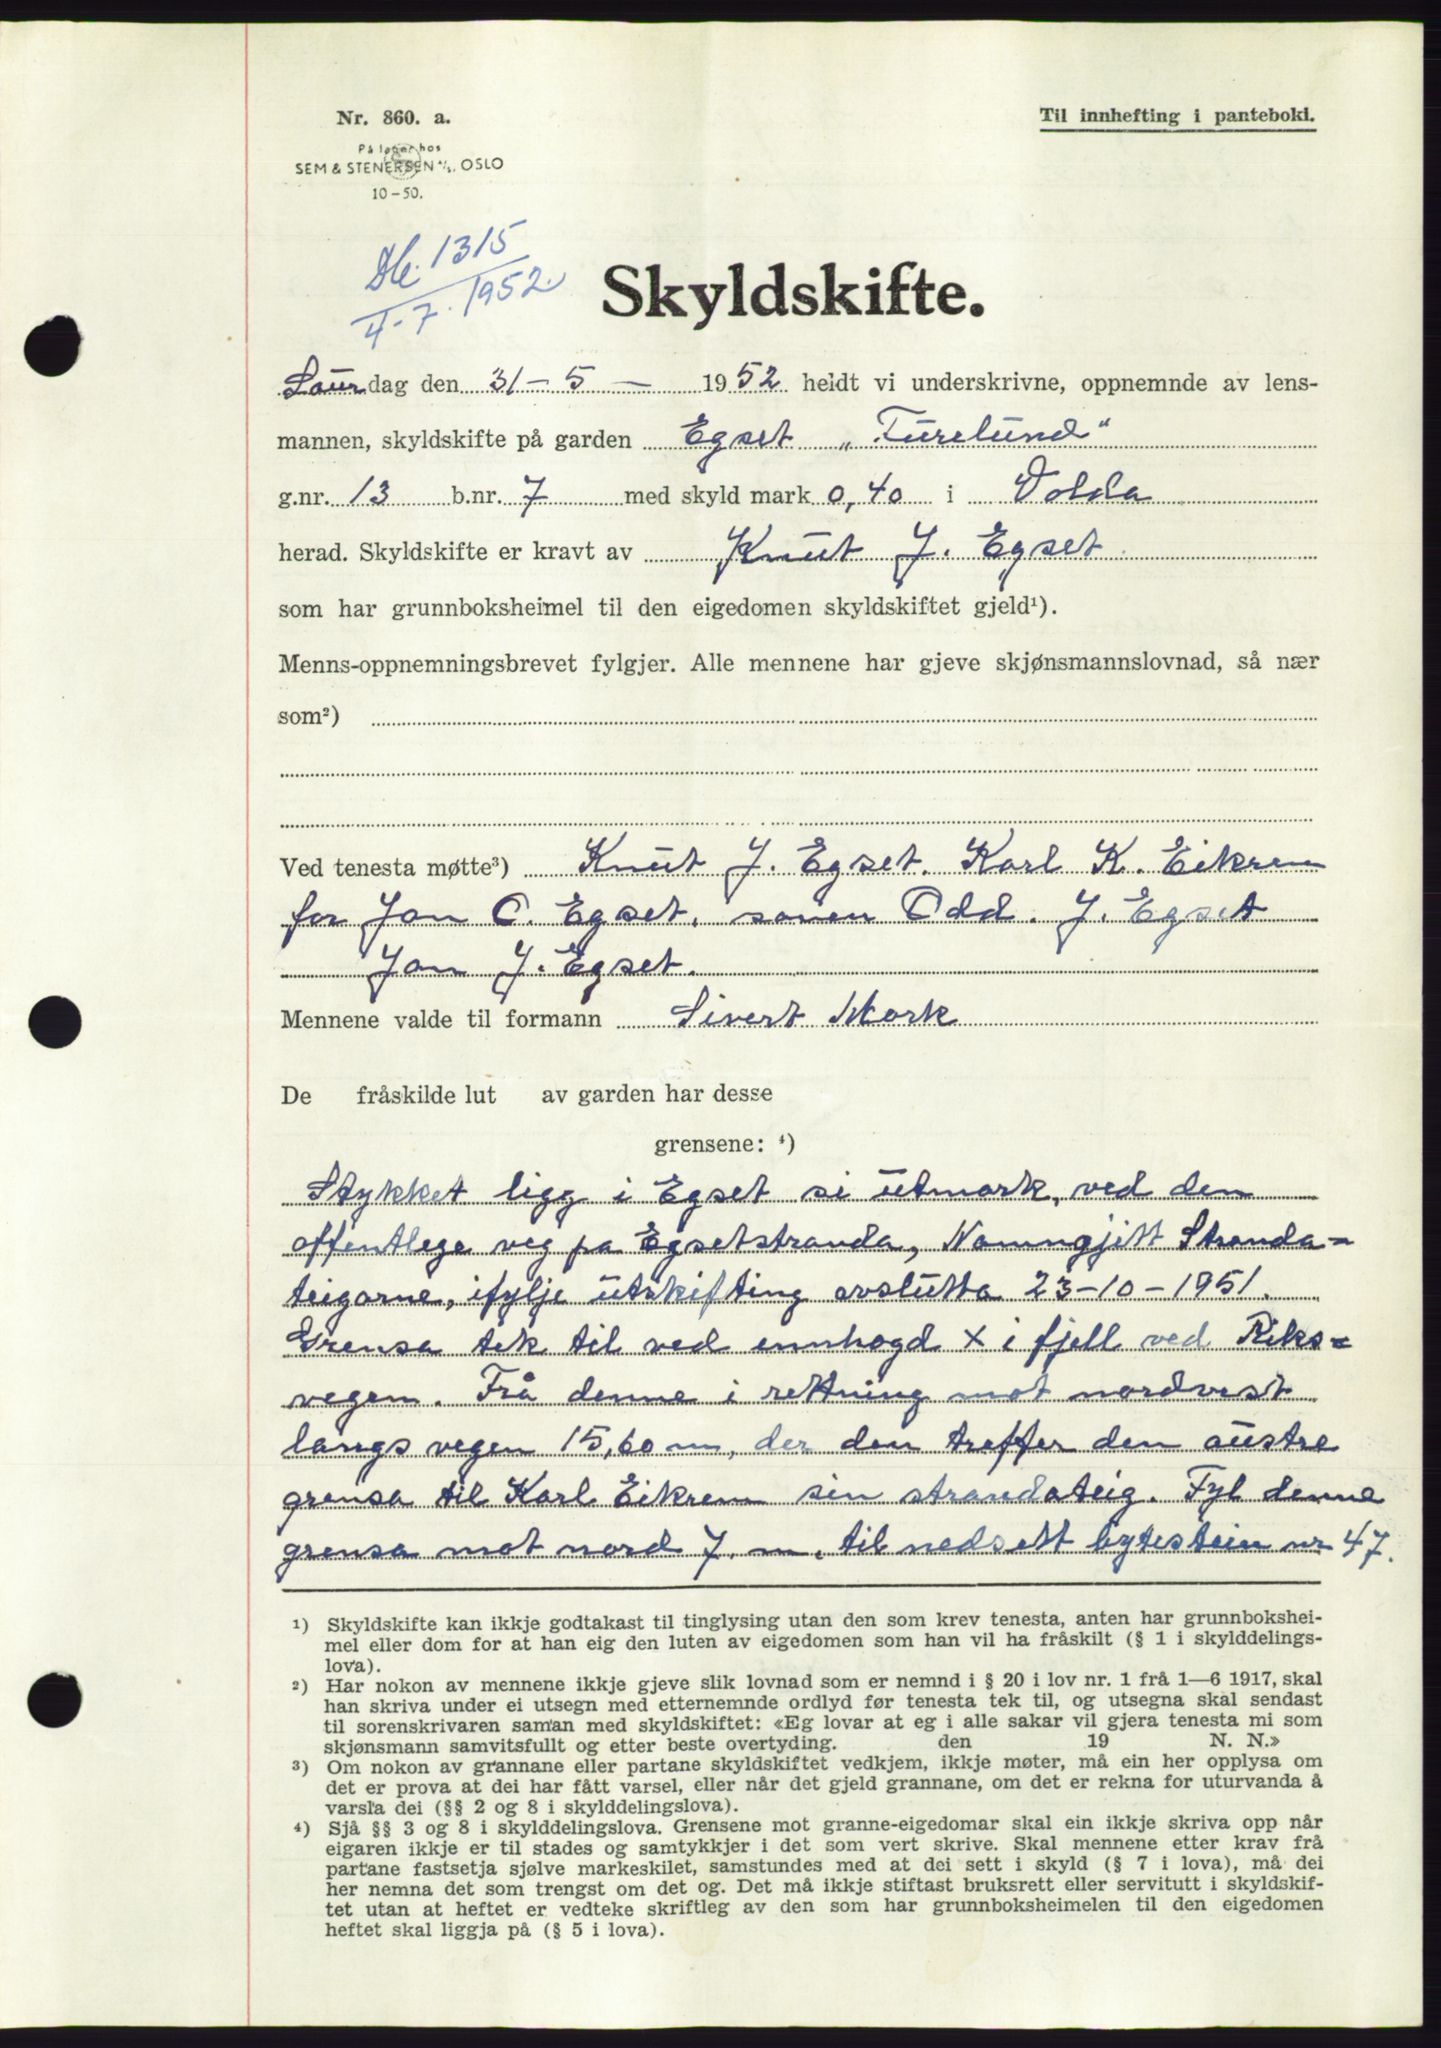 Nr. 860. a.
Til innhefting i panteboki.
På lager hos
SEM & STENERSEN A/S, OSLO
10-50.
Db. 1315
4-7. 1952.
Skyldskifte.
Laur dag den 31-5 - 1952 heldt vi underskrivne, oppnemnde av lens-
mannen, skyldskifte på garden Egset „Furelund"
g.nr. 13 b.nr. 7 med skyld mark 0,40 i Volda
herad. Skyldskifte er kravt av Knut J. Egset
som har grunnboksheimel til den eigedomen skyldskiftet gjeld¹).
Menns-oppnemningsbrevet fylgjer. Alle mennene har gjeve skjønsmannslovnad, så nær
som²)
Ved tenesta møtte³) Knut J. Egset. Karl K. Eikrem
for Jon O. Egset, sonen Odd. J. Egset
Jon J. Egset.
Mennene valde til formann Sivert Mork
De fråskilde lut av garden har desse
grensene: ⁴)
Stykket ligg i Egset si utmark, ved den
offentlege veg på Egsetstranda, Namngjitt Stranda-
teigarne, ifylje utskifting avslutta 23-10-1951.
Grensa tek til ved innhogd x i fjell ved Riks-
vegen. Frå denne i rettning mot nordvest
langs vegen 15,60 m, der den treffer den austre
grensa til Karl Eikrem sin strandateig. Fyl denne
grensa mot nord 7 m. til nedsett bytestein nr 47.
¹) Skyldskifte kan ikkje godtakast til tinglysing utan den som krev tenesta, anten har grunnbokshei-
mel eller dom for at han eig den luten av eigedomen som han vil ha fråskilt (§ 1 i skylddelings-
lova).
²) Har nokon av mennene ikkje gjeve slik lovnad som er nemnd i § 20 i lov nr. 1 frå 1—6 1917, skal
han skriva under ei utsegn med etternemnde ordlyd før tenesta tek til, og utsegna skal sendast
til sorenskrivaren saman med skyldskiftet: «Eg lovar at eg i alle sakar vil gjera tenesta mi som
skjønsmann samvitsfullt og etter beste overtyding. den 19 N. N.»
³) Om nokon av grannane eller partane skyldskiftet vedkjem, ikkje møter, må ein her opplysa om
det er prova at dei har fått varsel, eller når det gjeld grannane, om det er rekna for uturvanda å
varsla dei (§§ 2 og 8 i skylddelingslova).
⁴) Sjå §§ 3 og 8 i skylddelingslova. Grensene mot granne-eigedomar skal ein ikkje skriva opp når
eigaren ikkje er til stades og samtykkjer i det som vert skrive. Skal mennene etter krav frå
partane fastsetja sjølve markeskilet, samstundes med at dei sett i skyld (§ 7 i lova), må dei
her nemna det som trengst om det og. Det må ikkje stiftast bruksrett eller servitutt i skyldskif-
tet utan at heftet er vedteke skriftleg av den som har grunnboksheimelen til den eigedomen
heftet skal liggja på (§ 5 i lova).